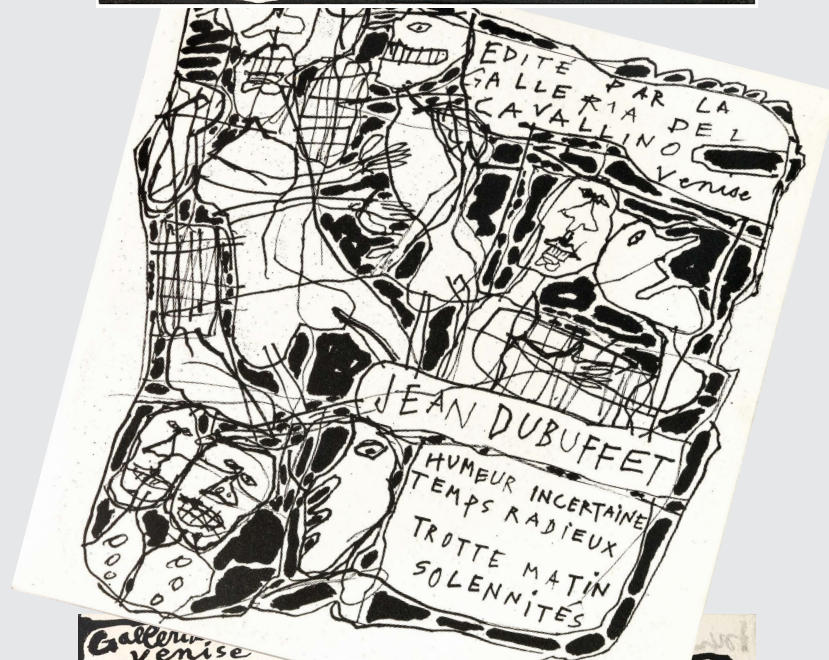 EDITÉ PAR LA
GALLERIA DEL
CAVALLINO
Venise
JEAN DUBUFFET
HUMEUR INCERTAINE
TEMPS RADIEUX
TROTTE MATIN
SOLENNITÉS
Galleria
Venise